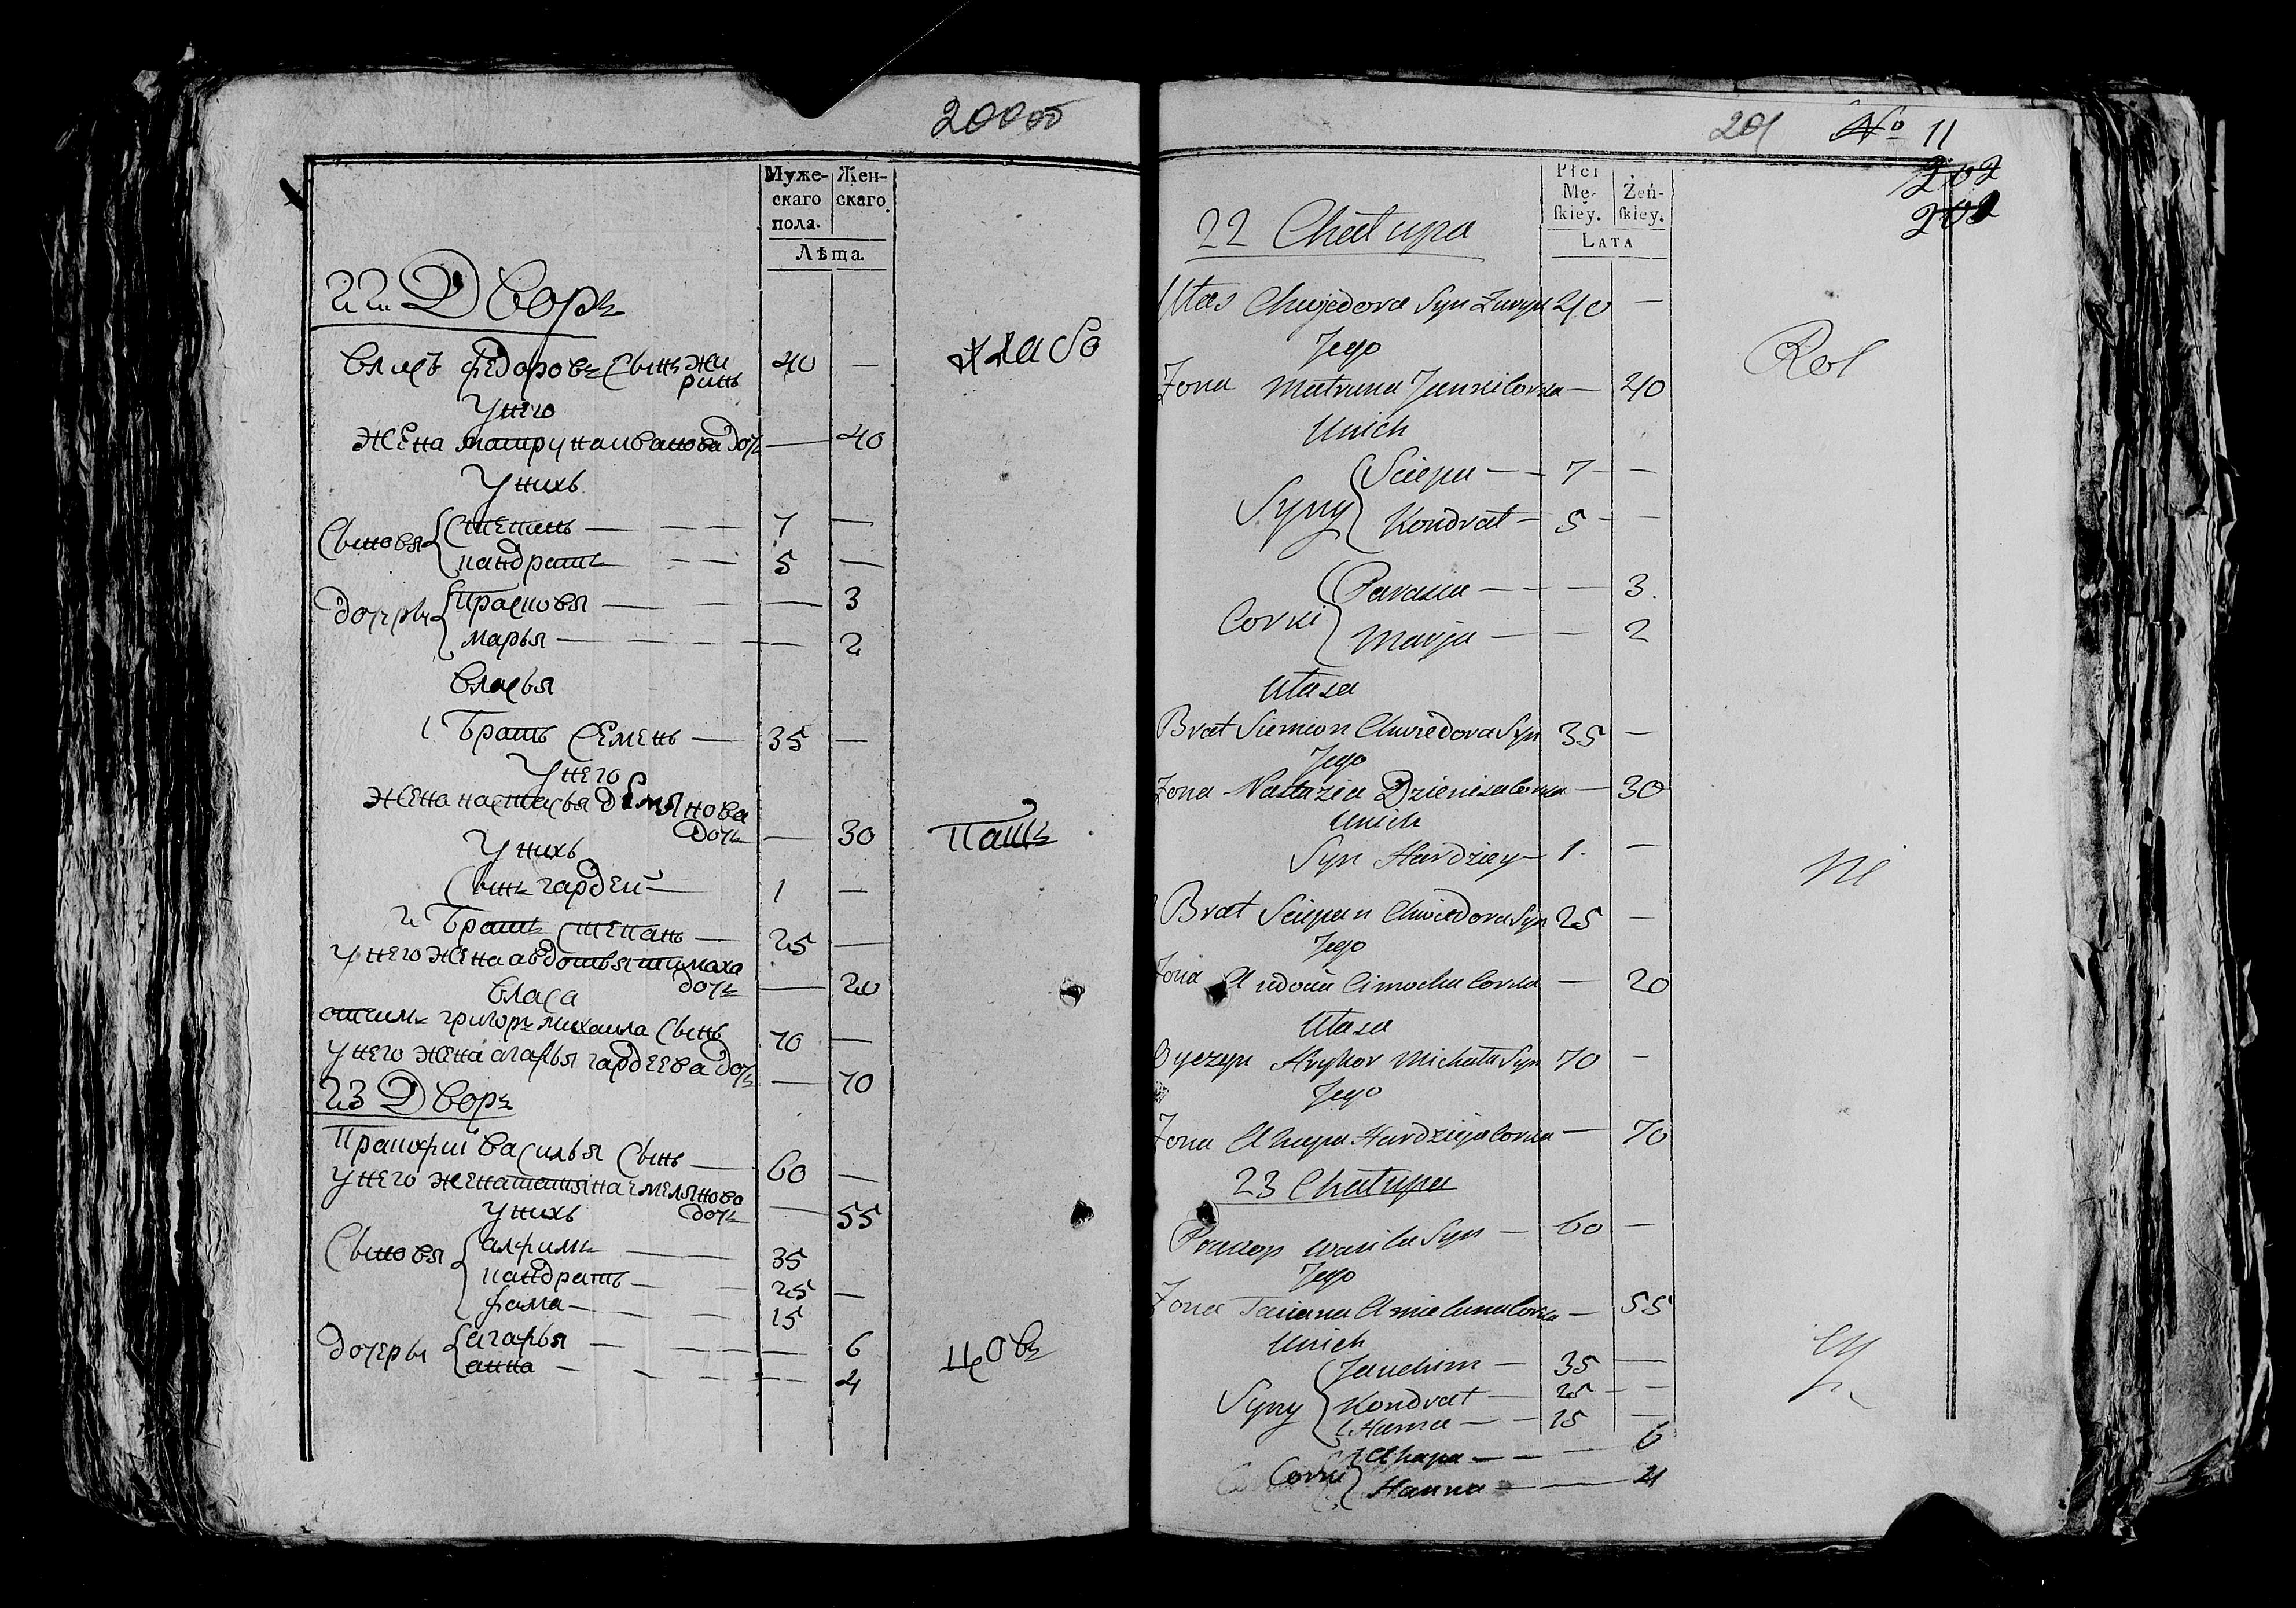 200 об
Муже-
скаго
пола.
Жен-
скаго
Лѣта.
22 Дворъ
Власъ Федоровъ Сынъ Жи
ринъ 40 —
У него
Жена Матруна Иванова дочь — 40
У нихъ
Сыновья Степанъ — 7 —
Кандратъ — 5 —
Дочери Прасковья — 3
Марья — 2
Власья
1 Братъ Семенъ — 35 —
У него
Жена Настасья Демянова
дочь — 30
Пашъ
У нихъ
Сынъ Гардей — 1 —
2 Братъ Степанъ — 25 —
У него жена Авдотья Тимаха
дочь — 20
Власа
отчимъ Григоръ Михаила Сынъ 70 —
У него жена Агафья Гардеева дочь — 70
23 Дворъ
Пракофий Василья Сынъ — 60 —
У него жена Татьяна Емельянова
дочь — 55
У нихъ
Сыновья 35
Кандратъ — 25 —
Фама — 15
Дочери Агафья — 6
Анна — 4
цовъ
201 No 11
202
Płci
Mę-
ſkiey.
Żeń-
ſkiey.
LATA
22 Chałupa
Ułas Chwiedora Syn Żuryn 40 —
Jego
Rol
Żona Matruna Jwanilowna — 40
Unich
Syny Sciepan — 7 —
Kondrat — 5 —
Corki Parasia — 3
Marja — 2
Ułasa
Brat Siemion Chwiedora Syn 35 —
Jego
Żona Nastazia Dzienisalowna — 30
Unich
Syn Hardziey — 1 —
ni
Brat Sciepan Chwiedora Syn 25 —
Jego
Żona Audocia Cimochalowna — 20
Ułasa
Oyczym Hryhor Michała Syn 70 —
Jego
Żona Ahapa Hardziejalowna — 70
23 Chałupa
Prakop Wasila Syn — 60 —
Jego
Żona Taciana Amielanalowna — 55
Unich
Syny Jauchim — 35 —
Kondrat — 25 —
Hama — 15 —
Corki Ahapa — 6
Hanna — 4